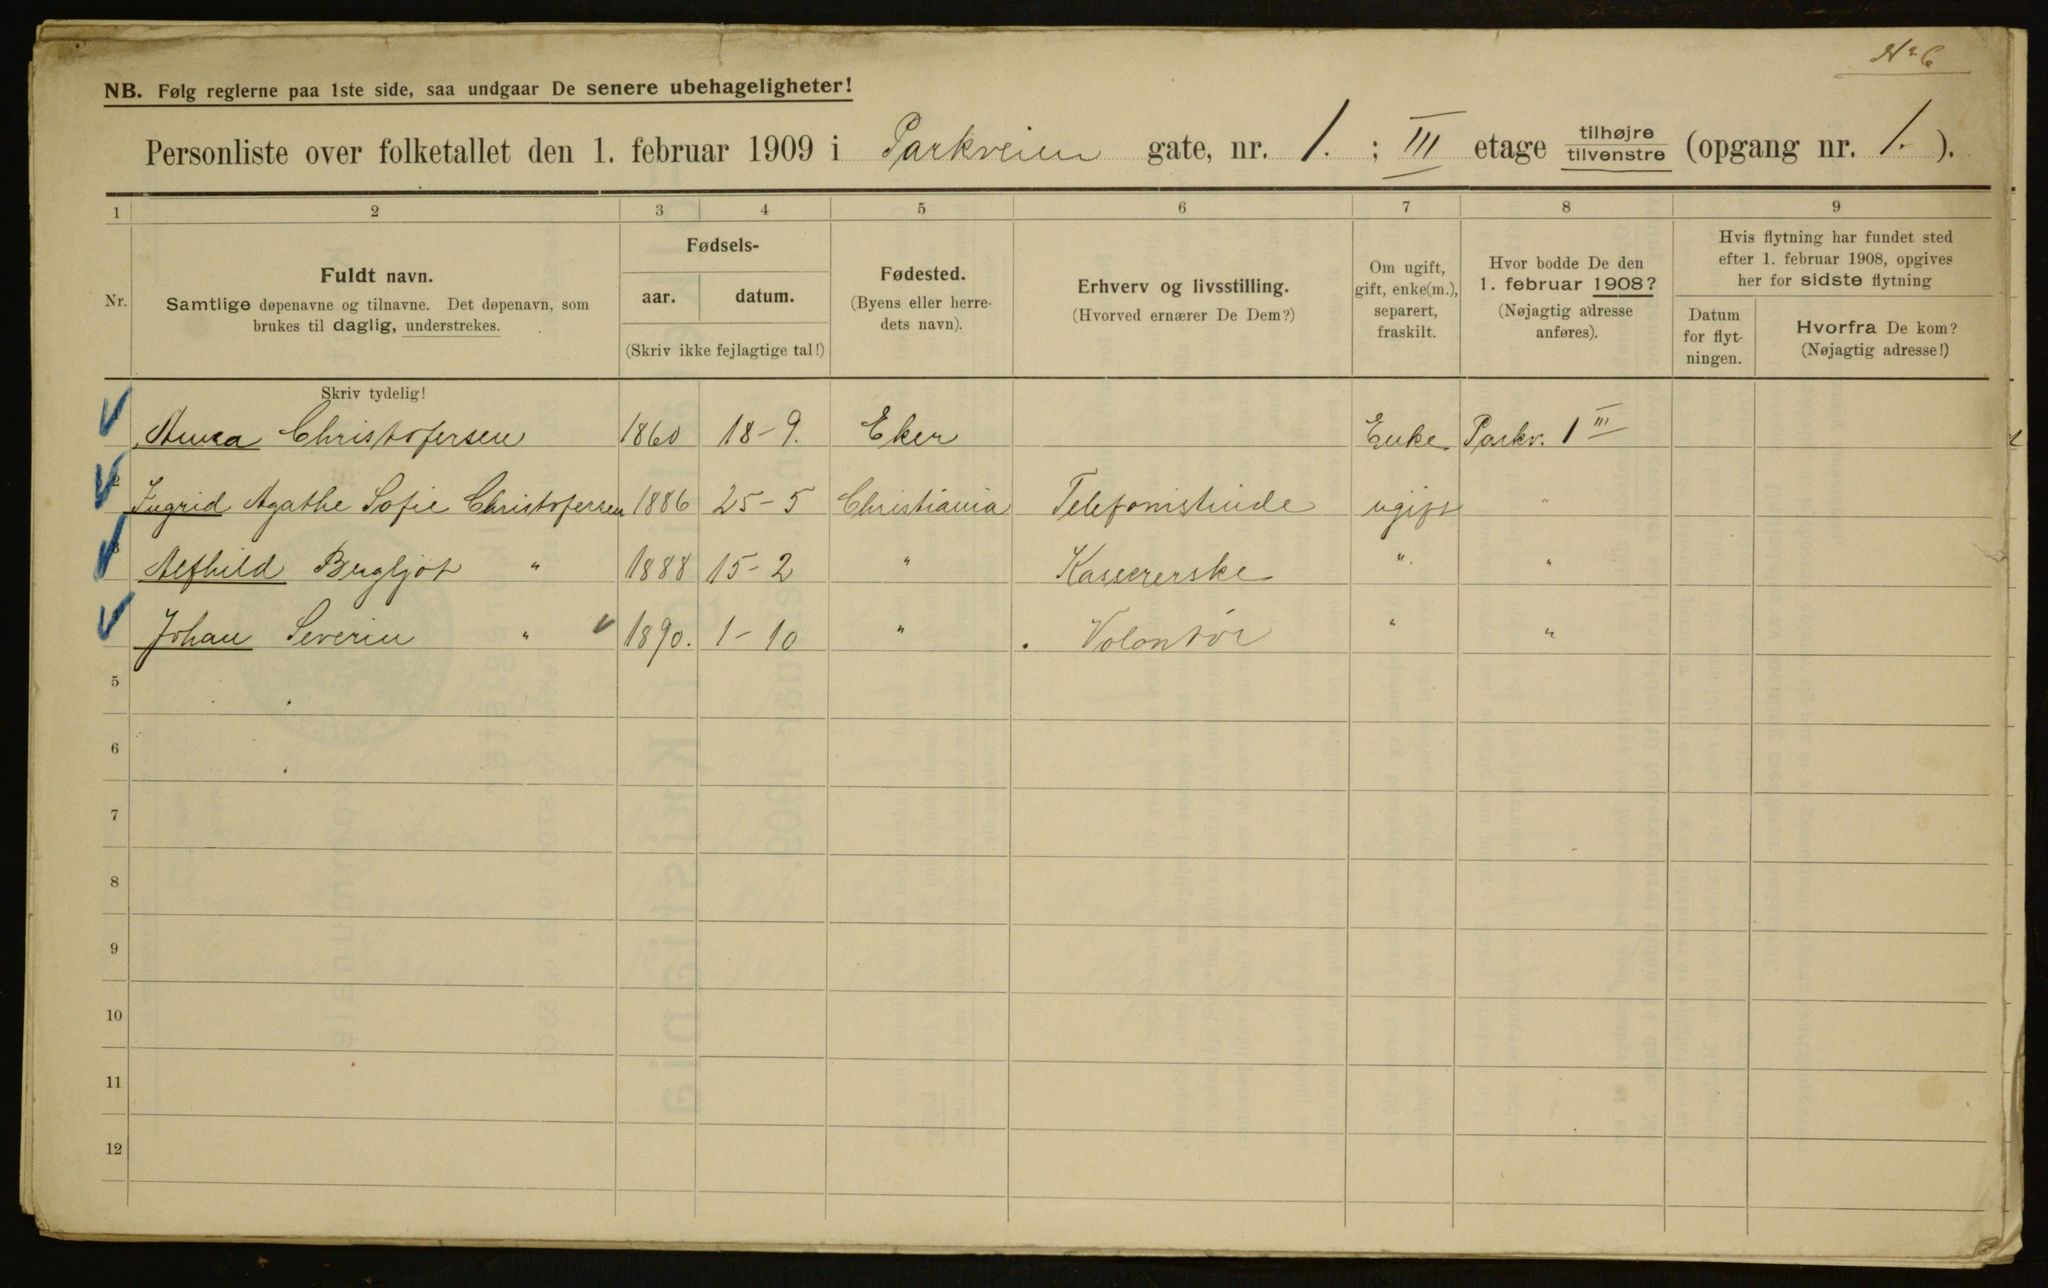 No 6
NB. Følg reglerne paa 1ste side, saa undgaar De senere ubehageligheter!
Personliste over folketallet den 1. februar 1909 i Parkveien gate, nr. 1. ; III etage tilhøjre tilvenstre (opgang nr. 1. ).
1 2 3 4 5 6 7 8 9
Nr.
Fuldt navn.
Samtlige døpenavne og tilnavne. Det døpenavn, som
brukes til daglig, understrekes.
Skriv tydelig!
Fødsels-
aar. datum.
(Skriv ikke fejlagtige tal!)
Fødested.
(Byens eller herre-
dets navn).
Erhverv og livsstilling.
(Hvorved ernærer De Dem?)
Om ugift,
gift, enke(m.),
separert,
fraskilt.
Hvor bodde De den
1. februar 1908?
(Nøjagtig adresse
anføres).
Hvis flytning har fundet sted
efter 1. februar 1908, opgives
her for sidste flytning
Datum
for flyt-
ningen.
Hvorfra De kom?
(Nøjagtig adresse!)
Anna Christofersen 1860 18-9. Eker Enke Parkv. 1 III
2 Ingrid Agathe Sofie Christofersen 1886 25-5 Christiania Telefonistinde ugift "
3 Alfhild Bergljot " 1888 15-2 " Kassererske " "
Johan Severin " 1890. 1-10 " Volontør " "
5
6
7
8
9
10
11
12